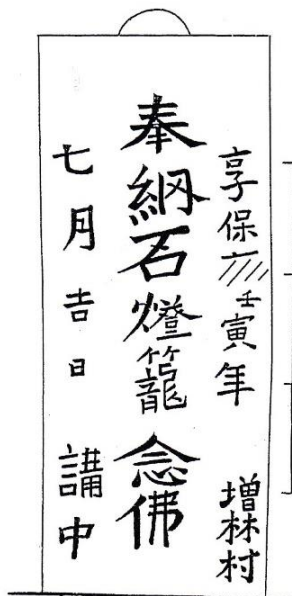 享保壬寅年 増林村
奉納石燈籠 念佛
七月吉日 講中